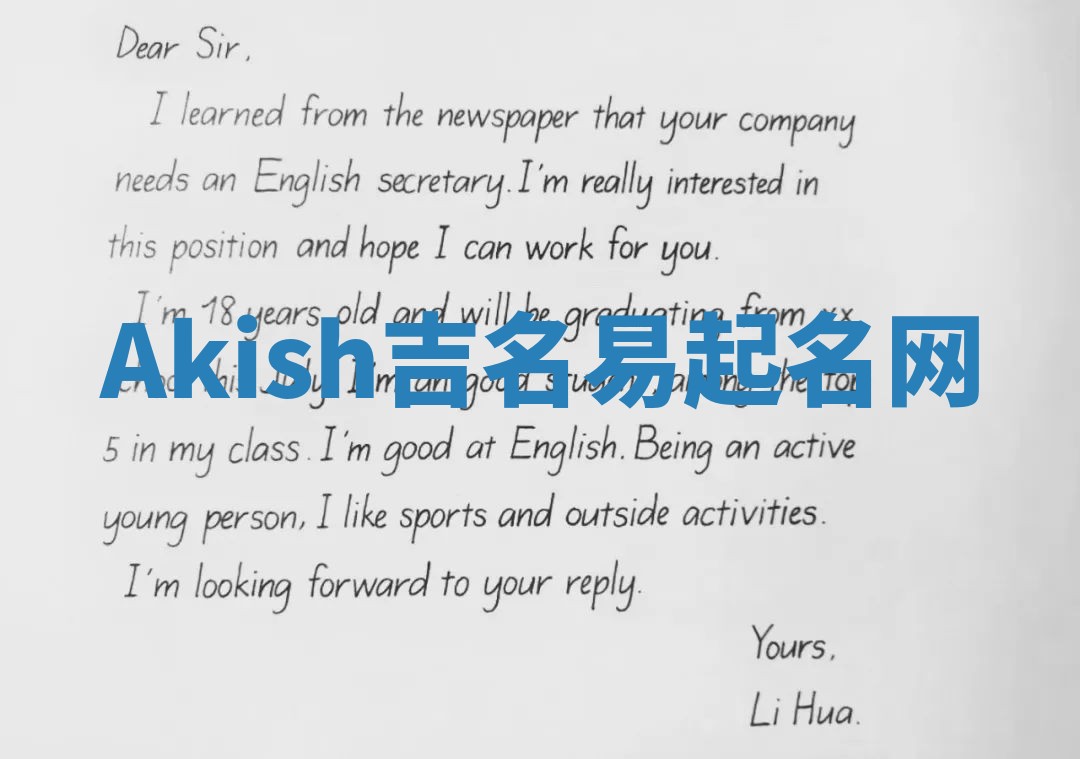 Dear Sir,
I learned from the newspaper that your company
needs an English secretary. I'm really interested in
this position and hope I can work for you.
I'm 18 years old and will be graduating from xx
this July. I'm an good student, among the top
Akish吉名易起名网
5 in my class. I'm good at English. Being an active
young person, I like sports and outside activities.
I'm looking forward to your reply.
Yours,
Li Hua.